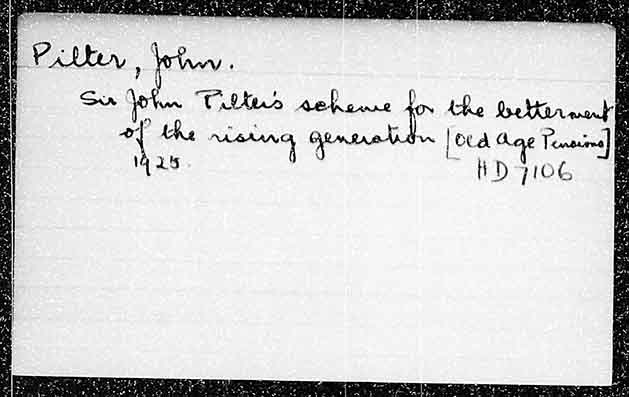 Pilter, John.
Sir John Pilter's scheme for the betterment
of the rising generation [Old Age Pensions]
1925.
HD 7106